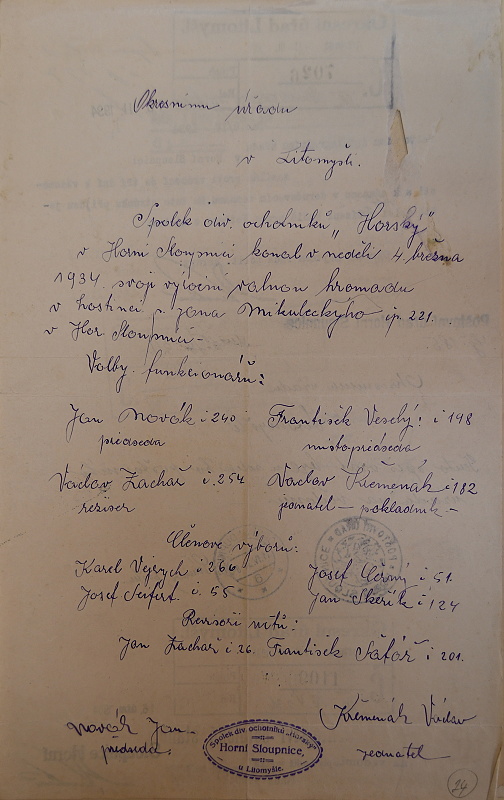 Okresnímu úřadu
v Litomyšli.
Spolek div. ochotníků "Horský"
v Horní Sloupnici konal v neděli 4. března
1934 svoji výroční valnou hromadu
v hostinci p. Jana Mikuleckýho čp. 221.
v Hor Sloupnici -
Volby funkcionářů:
Jan Novák č 240 František Veselý: č 198
předseda místopředseda
Václav Zachař č. 254 Václav Křemenák č 182
režiser jednatel - pokladník -
Členové výborů:
Karel Vejrych č 266 Josef Černý č 51.
Josef Seifrt. č. 55 Jan Skeřík č 124
Revisoři účtů:
Jan Zachař č 26. František Šafář č 201.
Novák Jan Křemenák Václav
předseda. jednatel
Spolek div. ochotníků „Horský"
Horní Sloupnice,
u Litomyšle.